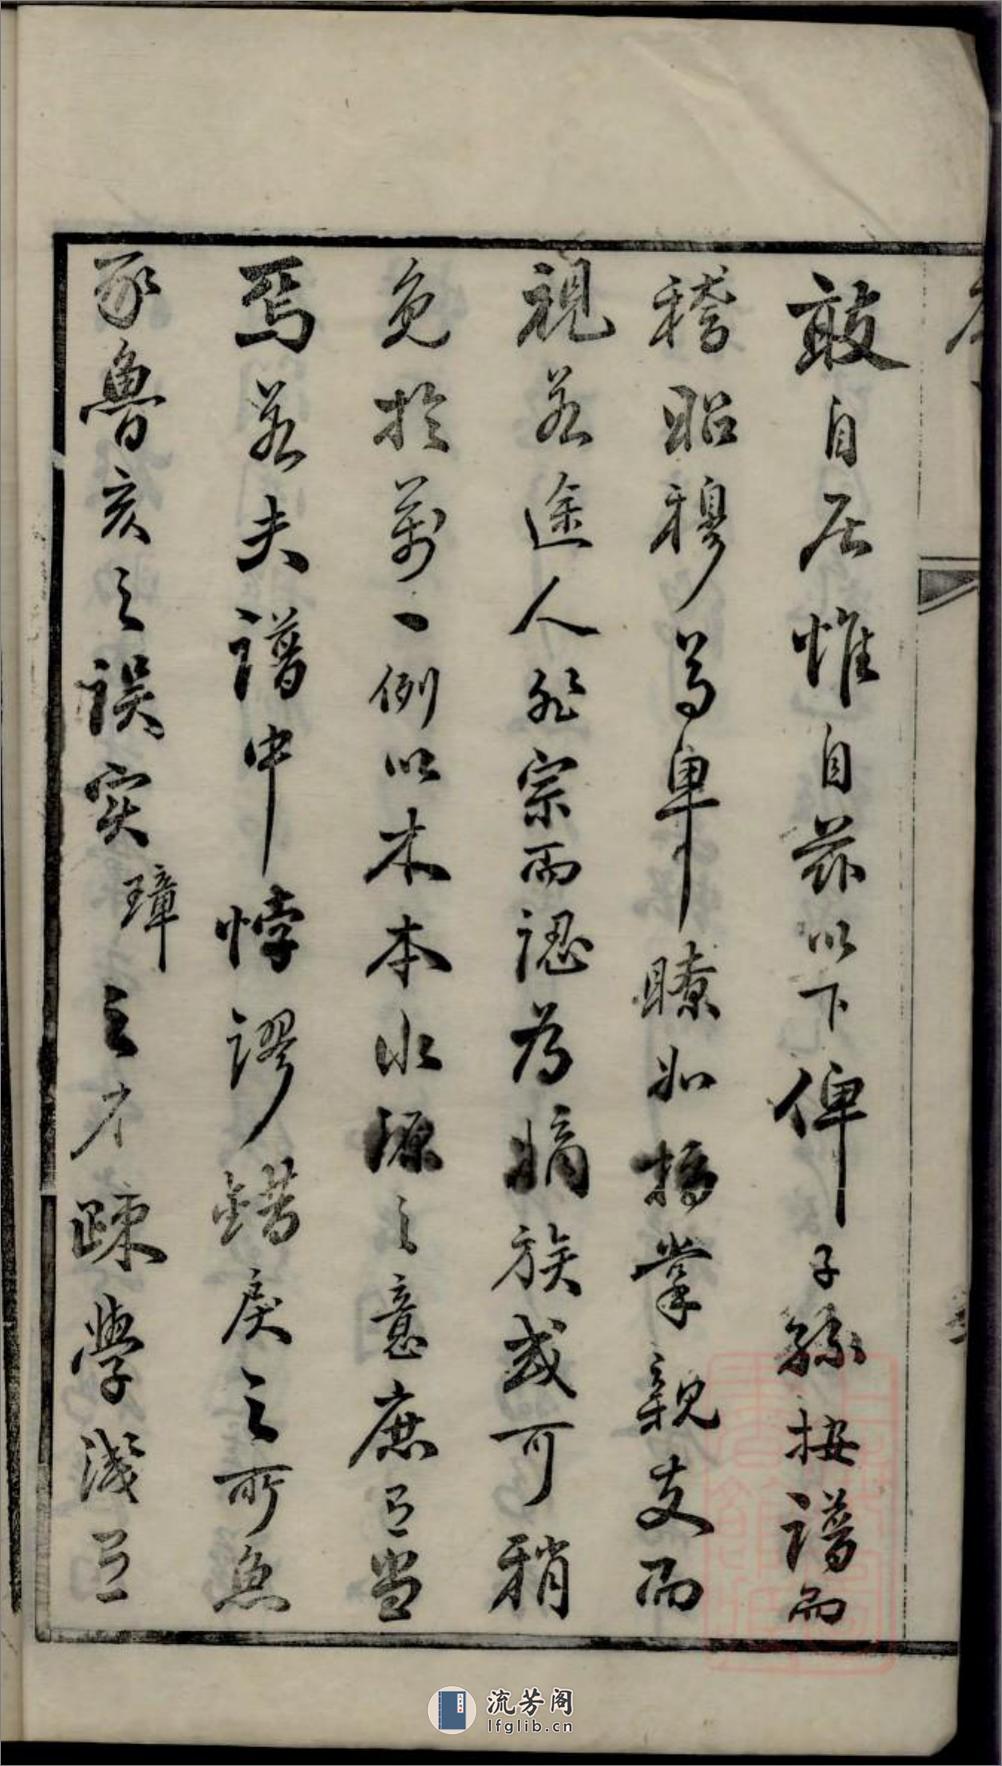 敢自居惟自茲以下俾子孫按譜而
稽昭穆尊卑瞭如指掌親支而
視若途人非宗而認為嫡族或可稍
免於萬一例以木本水源之意庶已當
焉若夫譜中悖謬錯戾之所魚
豕魯亥之誤實璋之才疎學淺之
流芳阁
lfglib.cn